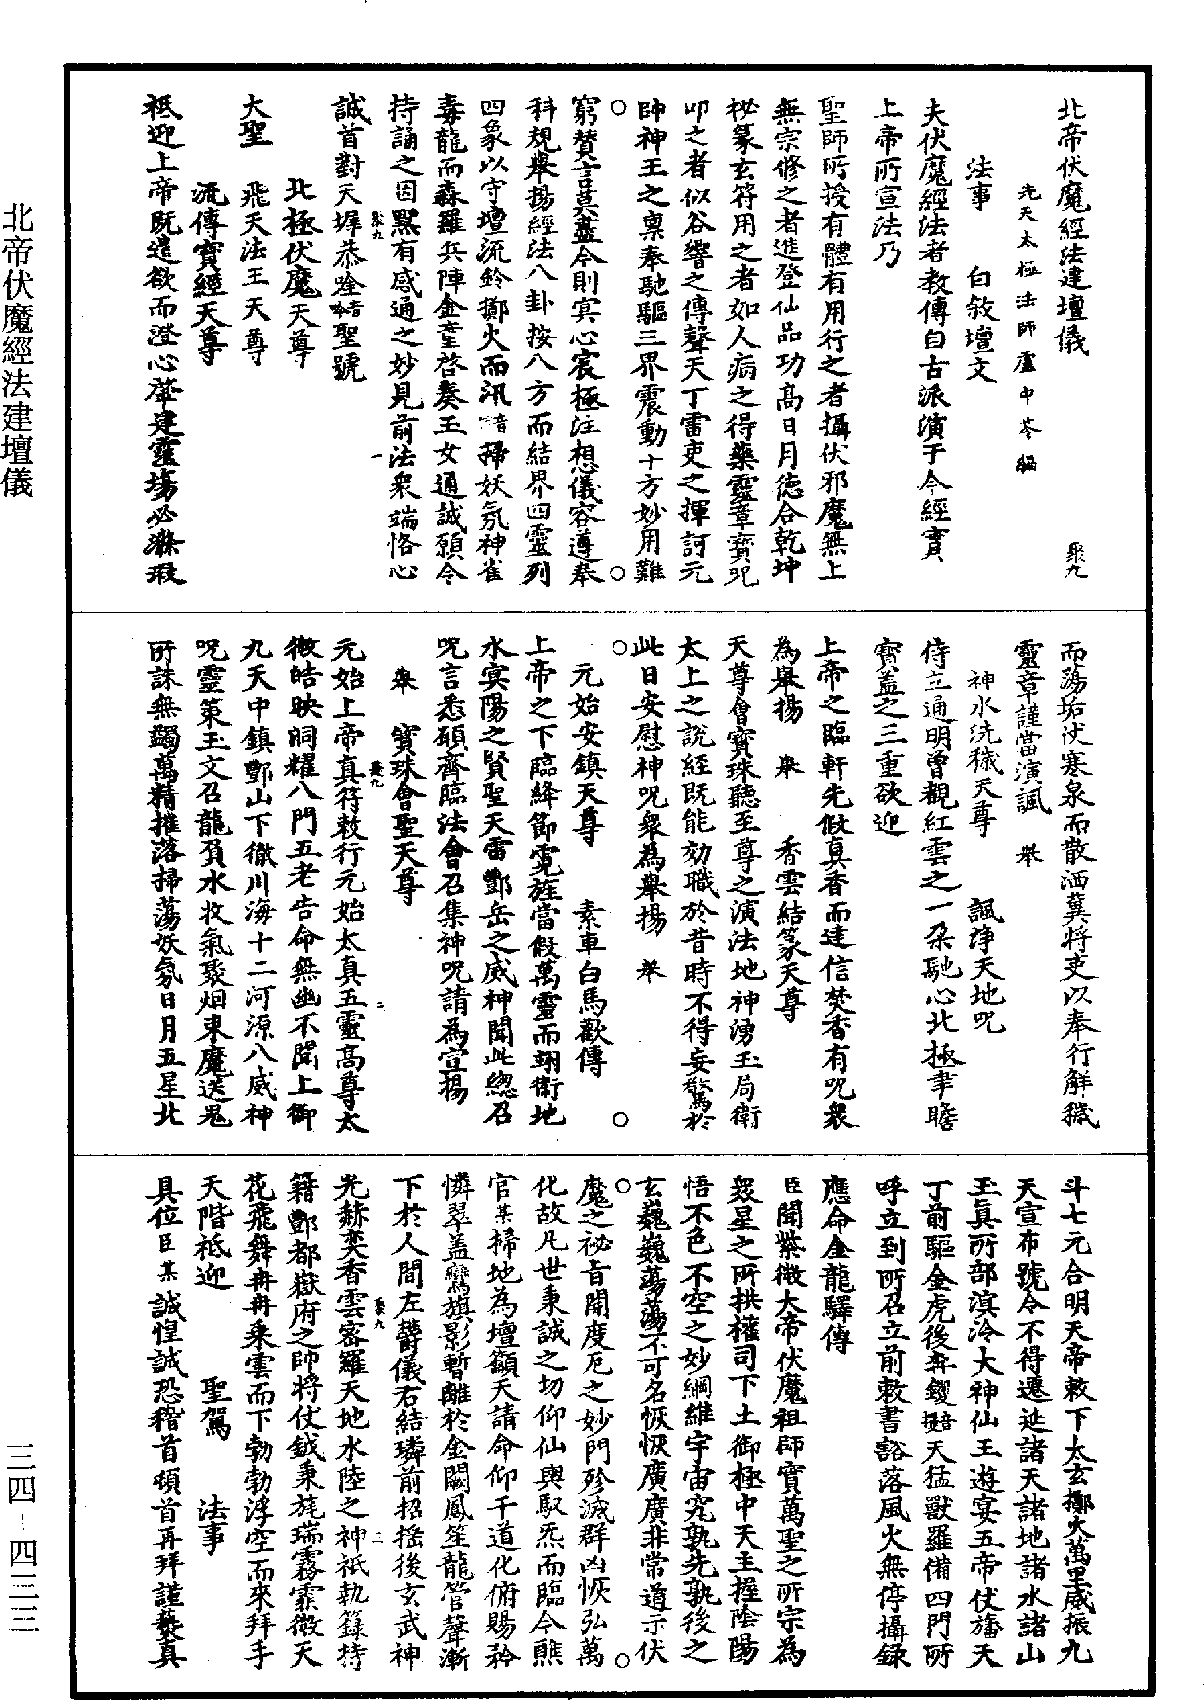 北帝伏魔經法建壇儀 聚九
先天太極法師盧中苓編
法事 白敘壇文
夫伏魔經法者教傳自古派演于今經實
上帝所宣法乃
聖師所授有體有用行之者攝伏邪魔無上
無宗修之者進登仙品功高日月德合乾坤
祕篆玄符用之者如人病之得藥靈章寶呪
叩之者似谷響之傳聲天丁雷吏之揮訶元
帥神王之稟奉馳驅三界震動十方妙用難
窮贊言莫盡今則冥心宸極注想儀容遵奉
科規舉揚經法八卦按八方而結界四靈列
四象以守壇流鈴擲火而汛掃妖氛神雀
毒龍而森羅兵陣金童啓奏玉女通誠願令
持誦之因默有感通之妙見前法衆端恪心
誠首對天墀恭唸聖號
北極伏魔天尊
大聖 飛天法王天尊
流傳寶經天尊
祗迎上帝旣遣欲而澄心肇建靈場必滌瑕
而蕩垢仗寒泉而散洒冀將吏以奉行解穢
靈章謹當演諷 舉
神水洗穢天尊 諷淨天地呪
侍立通明曾觀紅雲之一朶馳心北極聿瞻
寶蓋之三重欲迎
上帝之臨軒先假真香而達信焚香有呪衆
為舉揚 舉 香雲結篆天尊
天尊會寶珠聽至尊之演法地神湧玉局衛
太上之說經旣能効職於昔時不得妄驚於
此日安慰神呪衆為舉揚 舉
元始安鎮天尊 素車白馬歡傳
上帝之下臨絳節霓旌當假萬靈而翊衛地
水冥陽之賢聖天雷酆岳之威神聞此總召
呪言悉願齊臨法會召集神呪請為宣揚
舉 寶珠會聖天尊
元始上帝真符敕行元始太真五靈高尊太
微皓映洞耀八門五老告命無幽不聞上御
九天中鎮酆山下徹川海十二河源八威神
呪靈策玉文召龍負水收氣聚烟束魔送鬼
所誅無蠲萬精摧落掃蕩妖氛日月五星北
斗七元合明天帝敕下太玄擲火萬里威振九
天宣布號令不得遷延諸天諸地諸水諸山
玉真所部溟泠大神仙王遊宴五帝仗旛天
丁前驅金虎後奔鑁天猛獸羅備四門所
呼立到所召立前敕書豁落風火無停攝錄
應命金龍驛傳
臣聞紫微大帝伏魔祖師實萬聖之所宗為
衆星之所拱權司下土御極中天主握陰陽
悟不色不空之妙綱維宇宙究孰先孰後之
玄巍巍蕩蕩不可名恢恢廣廣非常道示伏
魔之祕旨開度厄之妙門殄滅群凶恢弘萬
化故凡世秉誠之切仰仙輿馭炁而臨今熊
官某掃地為壇籲天請命仰千道化俯賜矜
憐翠蓋鸞旗影暫離於金闕鳳笙龍管聲漸
下於人間左欝儀右結璘前招搖後玄武神
光赫奕香雲密羅天地水陸之神祇執籙持
籍酆都嶽府之帥將仗鉞秉旄瑞霧霏微天
花飛舞冉冉乘雲而下勃勃浮空而來拜手
天階祗迎 聖駕 法事
具位臣某誠惶誠恐稽首頓首再拜謹焚真
北帝伏魔經法建壇儀
三四－四二三